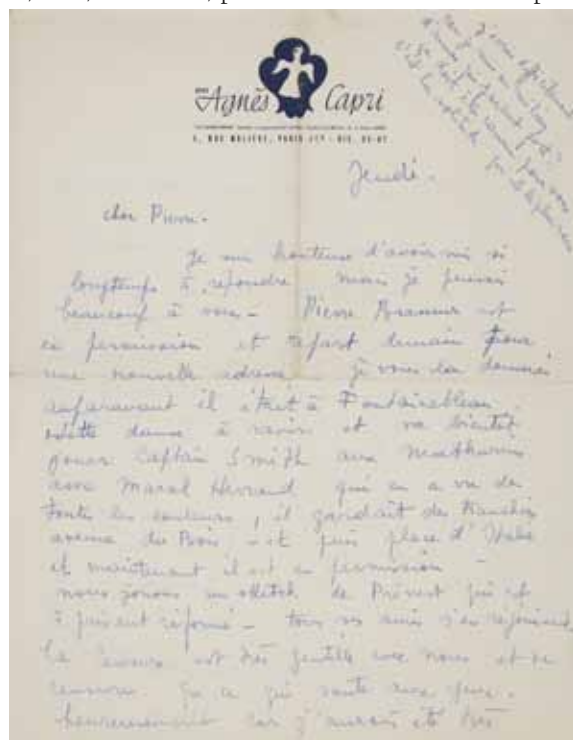 Chez
Agnès Capri
5, RUE MOLIÈRE, PARIS 1er - RIC.
Jeudi.
cher Pierre.
Je suis honteuse d'avoir mis si
longtemps à répondre mais je pensais
beaucoup à vous - Pierre Brasseur est
en permission et repart demain pour
une nouvelle adresse je vous la donnerai
auparavant il était à Fontainebleau
danse à ravir et va bientôt
jouer Captain Smith aux Mathurins
avec Marcel Herrand qui en a vu de
toutes les couleurs, il gardait des tranchées
avenue du Bois et puis place d'Italie
et maintenant il est en permission -
nous jouons un sketch de Prévert qui est
à présent réformé - tous ses amis s'en réjouissent.
La censure est très gentille avec nous et ne
censure que ce qui saute aux yeux.
heureusement car j'aurais été très